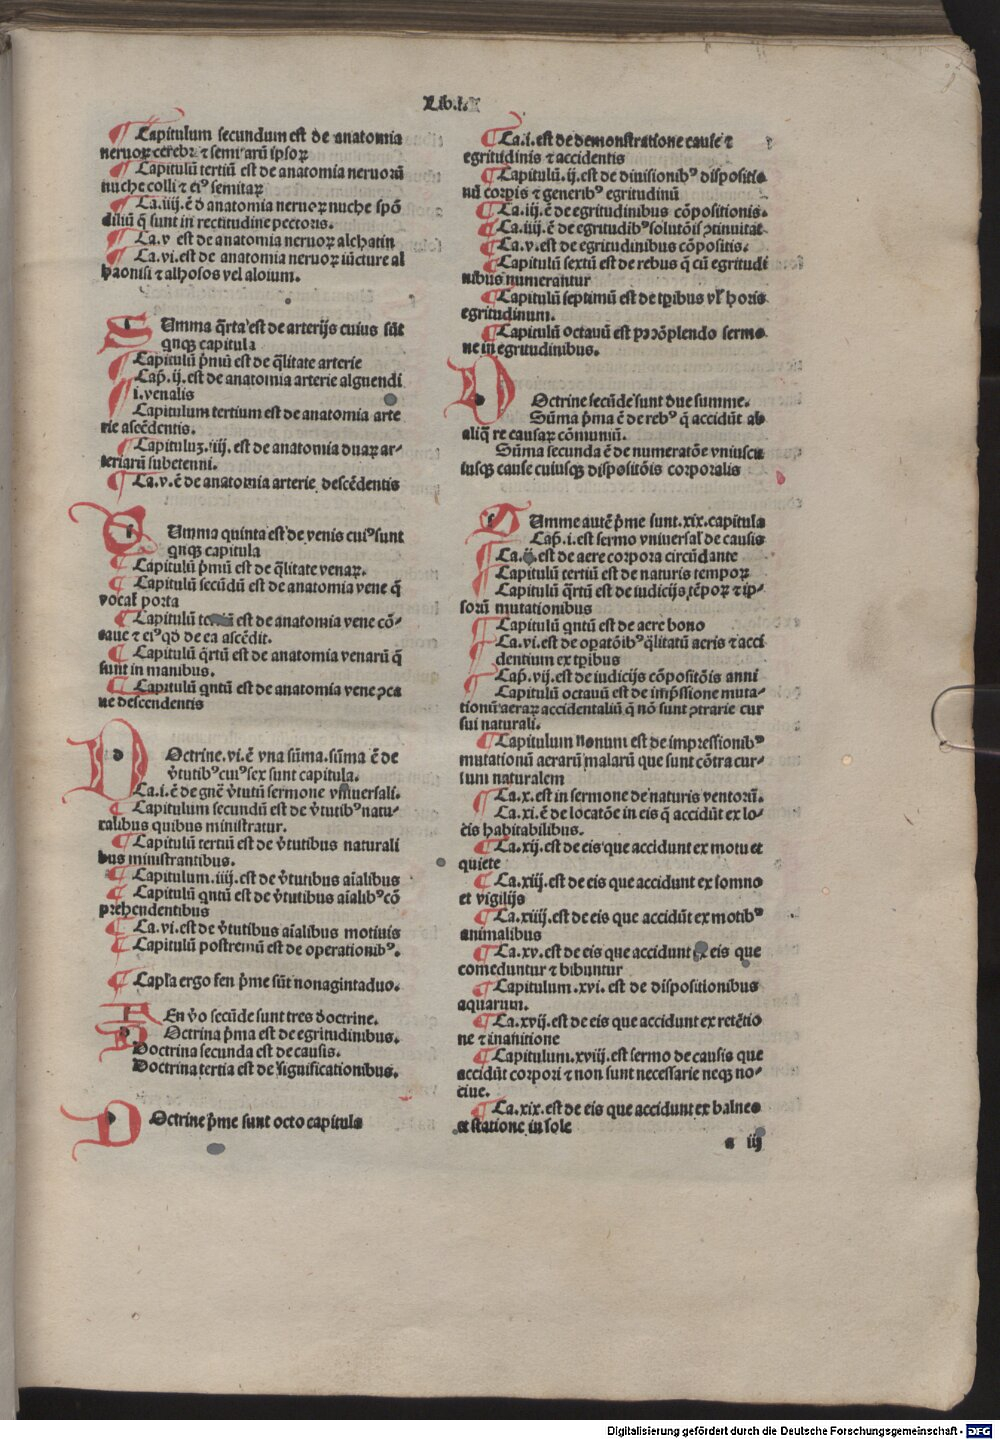 Lib. I.
Capitulum secundum est de anatomia
neruoꝝ cerebri ⁊ semitarū ipsoꝝ
Capitulū tertiū est de anatomia neruorū
nuche colli ⁊ eiꝰ semitaꝝ
Ca.iiij.ē d̄ anatomia neruoꝝ nuche spō
diliū q̄ sunt in rectitudine pectoris.
Ca.v est de anatomia neruoꝝ alchatin
Ca.vi.est de anatomia neruoꝝ iūcture al
haonisi ⁊ alhosos vel aloium.
Umma q̄rta est de arterijs cuius sūt
qnqꝫ capitula
Capitulū p̄mū est de q̄litate arterie
Cap̄.ij.est de anatomia arterie alguendi
i.venalis
Capitulum tertium est de anatomia arte
rie ascēdentis.
Capituluꝫ.iiij. est de anatomia duaꝝ ar-
teriarū subetenni.
Ca.v.ē de anatomia arterie descēdentis
Umma quinta est de venis cuiꝰ sunt
qnqꝫ capitula
Capitulū p̄mū est de q̄litate venaꝝ.
Capitulū secūdū est de anatomia vene q̄
vocat̄ porta
Capitulū est de anatomia vene cō-
caue ⁊ eiꝰ qd̄ de ea ascēdit.
Capitulū q̄rtū est de anatomia venarū q̄
sunt in manibus.
Capitulū qntū est de anatomia vene ꝯca
ue descendentis
Octrine.vi.ē vna sūma.sūma ē de
v̄tutibꝰ cuiꝰ sex sunt capitula.
Ca.i.ē de gn̄e v̄tutū sermone vniuersali.
Capitulum secundū est de v̄tutibꝰ natu-
ralibus quibus ministratur.
Capitulū tertiū est de v̄tutibus naturali
bus ministrantibus.
Capitulum.iiij.est de v̄tutibus aīalibus
Capitulū qntū est de v̄tutibus aīalibꝰ cō
prehendentibus
Ca.vi.est de v̄tutibus aīalibus motiuis
Capitulū postremū est de operationibꝰ.
Capl̄a ergo fen p̄me sūt nonagintaduo.
En v̄o secūde sunt tres doctrine.
Octrina p̄ma est de egritudinibus.
Doctrina secunda est de causis.
Doctrina tertia est de significationibus.
Octrine p̄me sunt octo capitula
Ca.i.est de demonstratione cause ⁊
egritudinis ⁊ accidentis
Capitulū.ij.est de diuisionibꝰ dispositio
nū corpis ⁊ generibꝰ egritudinū
Ca.iij.ē de egritudinibus cōpositionis.
Ca.iiij.ē de egritudibꝰ solutōis ꝯtinuitat
Ca.v.est de egritudinibus cōpositis.
Capitulū sextū est de rebus q̄ cū egritudi
nibus numerantur
Capitulū septimū est de tꝑibus vl̄ horis
egritudinum.
Capitulū octauū est ꝓ cōplendo sermo
ne in egritudinibus.
Octrine secūde sunt due summe.
Sūma p̄ma ē de rebꝰ q̄ accidūt ab
aliq̄ re causaꝝ cōmuniū.
Sūma secunda ē de numeratōe vniuscu
iusqꝫ cause cuiusqꝫ dispositōis corporalis
Umme autē p̄me sunt.xix.capitula
Cap̄.i.est sermo vniuersal̄ de causis
Ca.ij.est de aere corpora circūdante
Capitulū tertiū est de naturis tempoꝝ
Capitulū q̄rtū est de iudicijs tēpoꝝ ⁊ ip-
sorū mutationibus
Capitulū qntū est de aere bono
Ca.vi.est de oꝑatōibꝰ q̄litatū aeris ⁊ acci
dentium ex tꝑibus
Cap̄.vij.est de iudicijs cōpositōis anni
Capitulū octauū est de imp̄ssione muta-
tionū aeraꝝ accidentaliū q̄ nō sunt ꝯtrarie cur
sui naturali.
Capitulum nonum est de impressionibꝰ
mutationū aerarū malarū que sunt cōtra cur-
sum naturalem
Ca.x.est in sermone de naturis ventorū.
Ca.xi.ē de locatōe in eis q̄ accidūt ex lo-
cis habitabilibus.
Ca.xij.est de eis que accidunt ex motu et
quiete
Ca.xiij.est de eis que accidunt ex somno
et vigilijs
Ca.xiiij.est de eis que accidūt ex motibꝰ
animalibus
Ca.xv.est de eis que accidunt ex eis que
comeduntur ⁊ bibuntur
Capitulum.xvi. est de dispositionibus
aquarum.
Ca.xvij.est de eis que accidunt ex retētio
ne ⁊ inanitione
Capitulum.xviij.est sermo de causis que
accidūt corpori ⁊ non sunt necessarie neqꝫ no-
ciue.
Ca.xix.est de eis que accidunt ex balneo
⁊ statione in sole
a iij
Digitalisierung gefördert durch die Deutsche Forschungsgemeinschaft - DFG